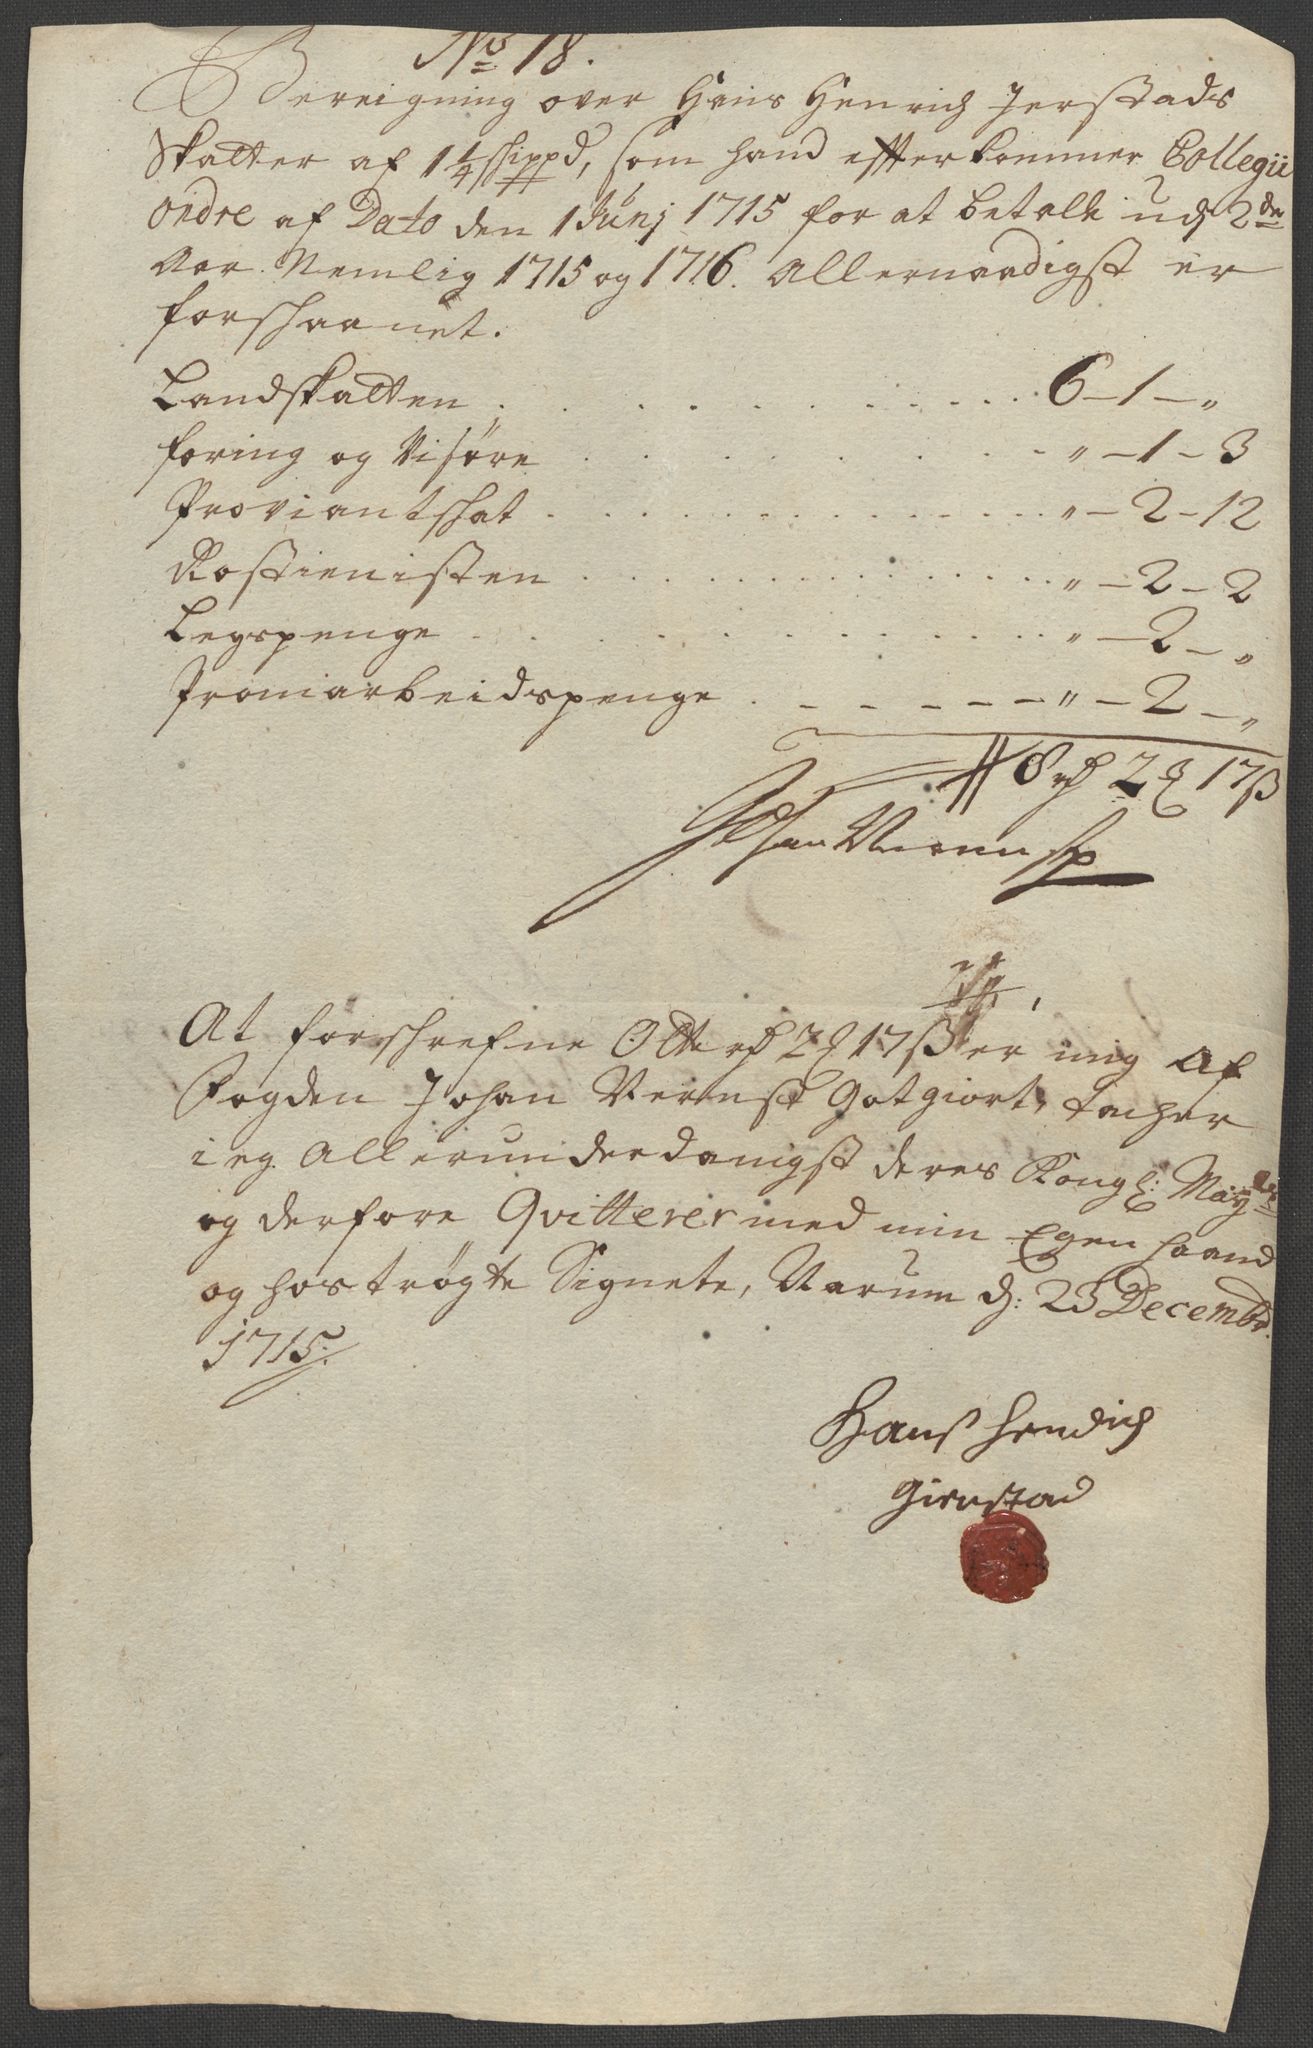 No 18.
Bereigning over Hans Henrich Jerstads
Skatter af 1 1/4 skippd, som hand effterkommer Collegii
ordre af Dato den 1 Junj 1715 for at betalle udj 2de
Aar Nemlig 1715 og 1716. Allernaadigst er
forskaanet.
Landskatten . . . 6 – 1 – „
foring og Visøre . . . „ – 1 – 3
Proviantskat . . . „ – 2 – 12
Rostienisten . . . „ – 2 – 2
Legspenge . . . „ – 2 – „
Proviarbeidspenge . . . „ – 2 – „
8 rd 2 17 ß
Johan
At forskrefne Otte rd 2 17 ß er mig af
Fogden Johan Vernst Gotgiort, tacher
ieg Allerunderdanigst deres Kongl: Mayts
og derfore Qvitterer med min Egen haand
og hostrøgte Signete, Narum d: 23 Decembr.
1715.
Hanss Hendich
Gierstad